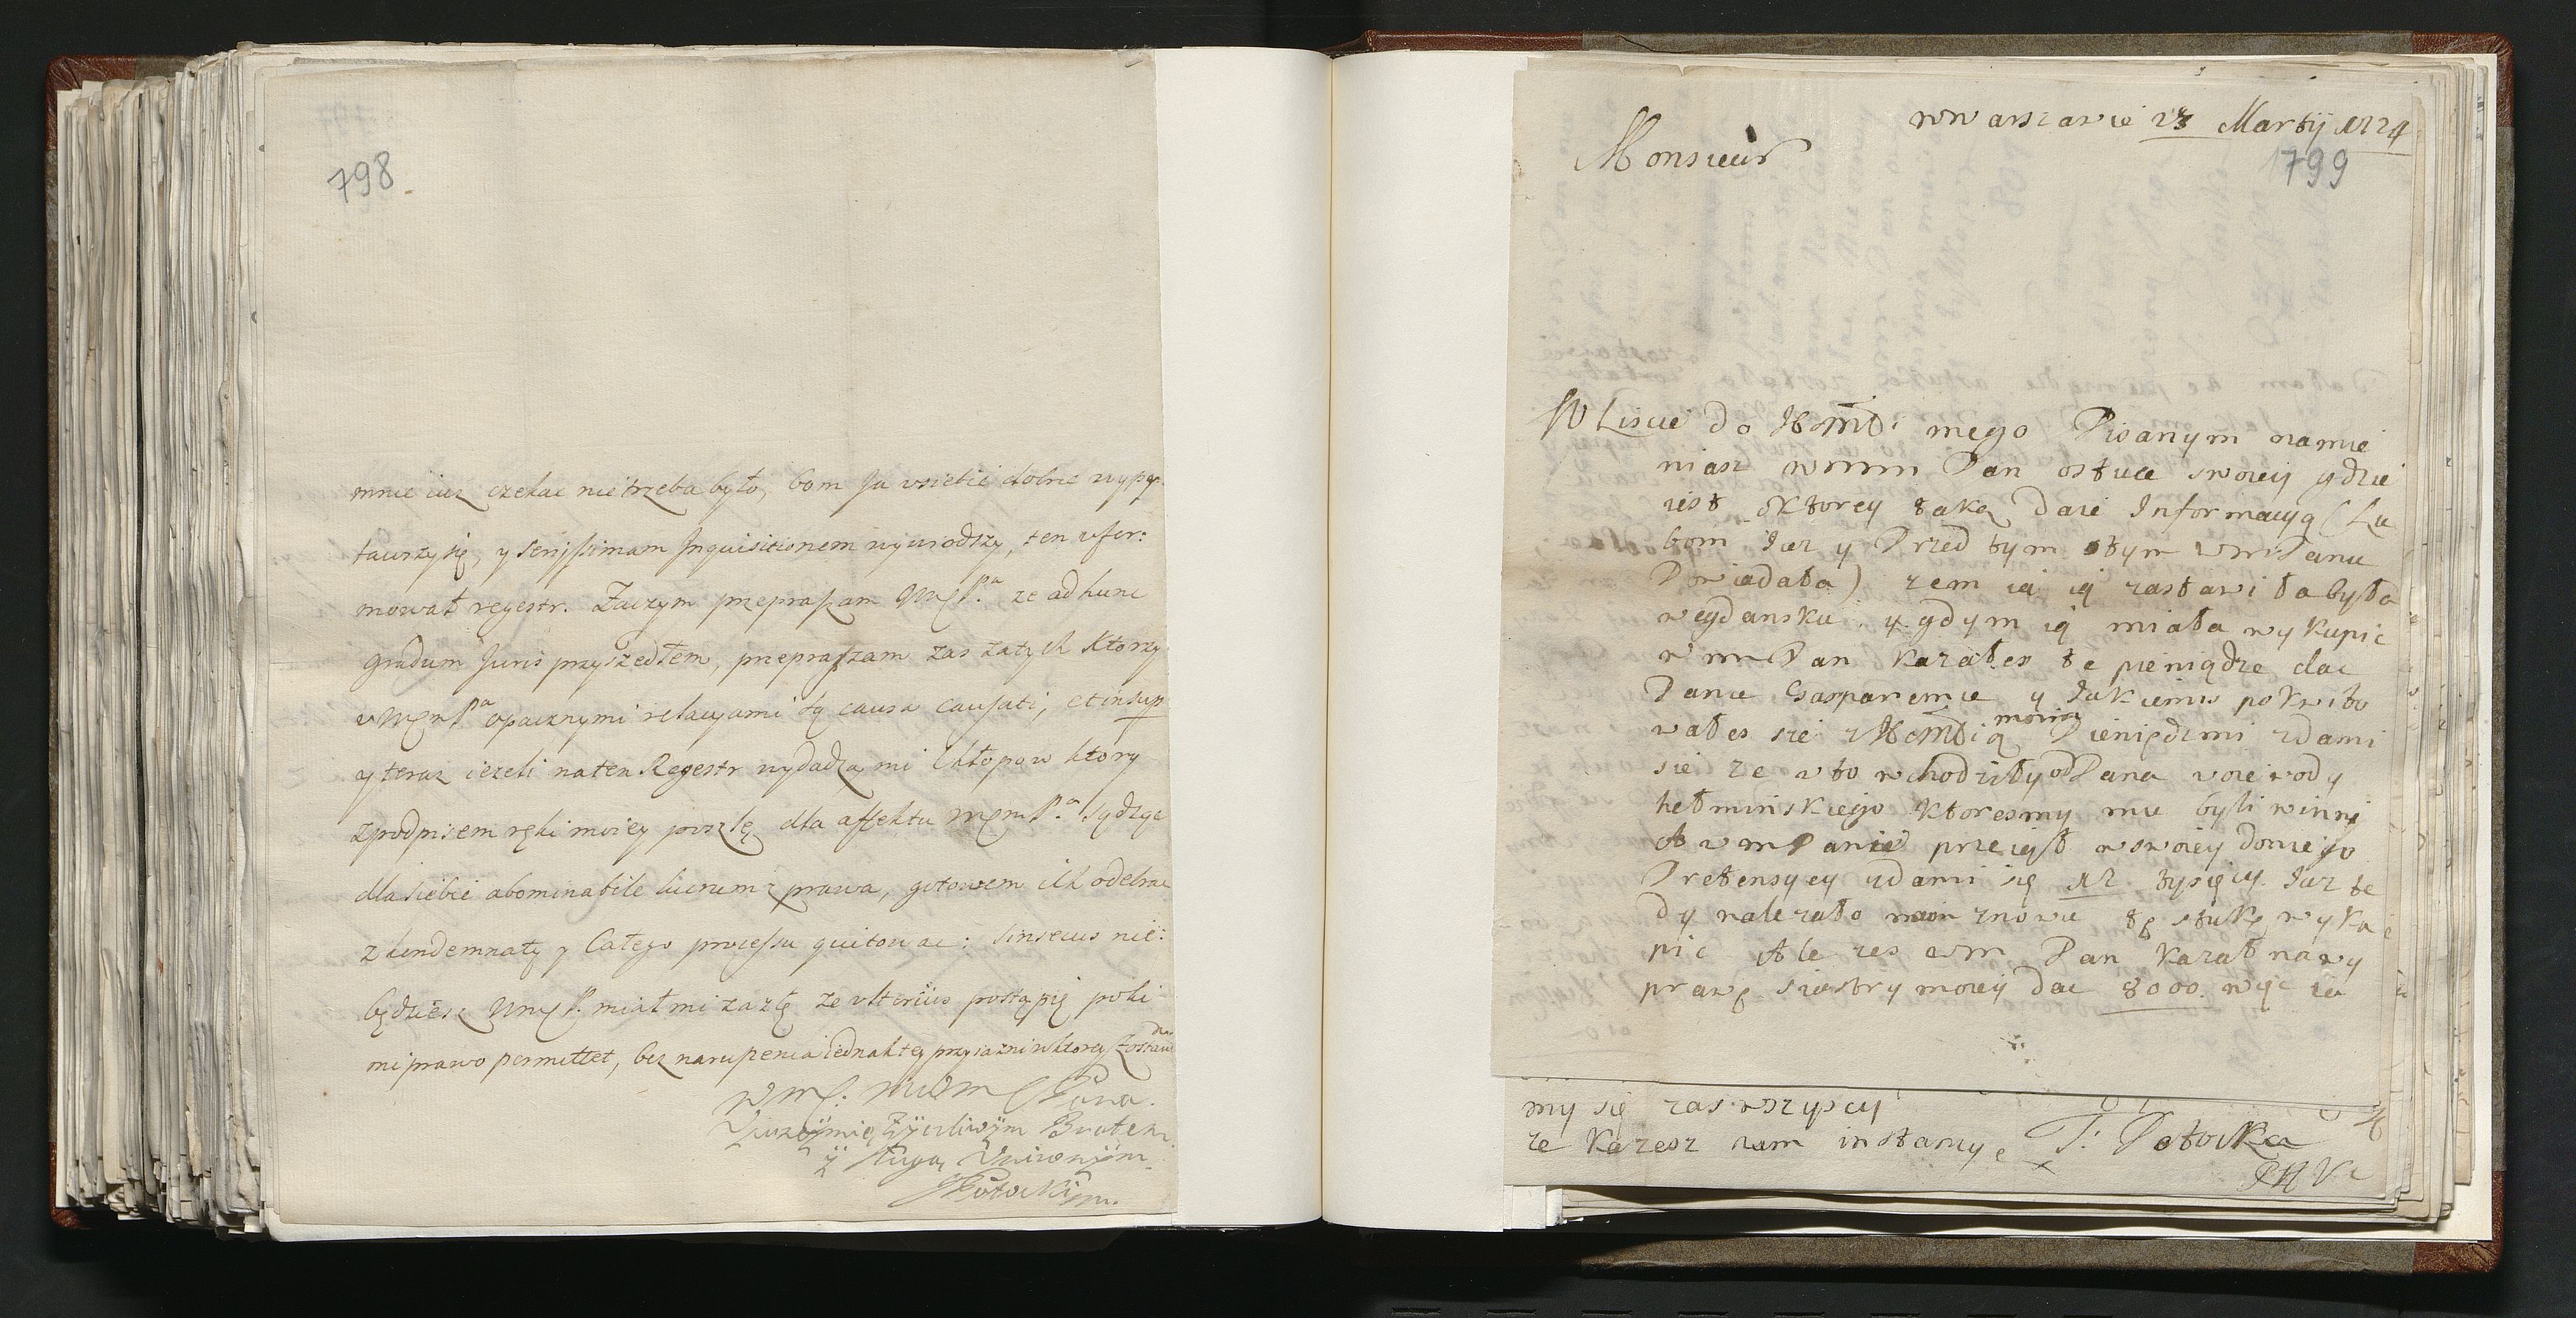 798
mnie iuz czekac nie trzeba było, bom Ja usiebie dobrze wypy
tawszy się, y serijssimam Inquisitionem wywiodszy, ten ufor:
mował regestr. Zaczym przepraszam WMP.ͣ ze ad hunc
gradum Juris przyszedłem, przepraszam zas za tych ktorzy
uWMmPͣ opacznymi relacyami tę causa causati, et insup
y teraz iezeli na ten Regestr wydadzą mi Chłopow ktory
z podpisem ręki moiey poszlę dla affektu WMmP.ͣ sądząc
dla siebie abominabile lucrum z prawa, gotowem ich odebrac
z kondemnaty y Całego processu quitowac; sin secus nie:
będziesz WMP. miał mi za złę ze ulterius postąpię poki
mi prawo permittet, bez naruszenia iednak tey przyiazni w ktorey zostaie
WM: MWM Pana.
Zyczliwym Bratem
y sługą Uniżonym
JPotockim.
wWarszawie 23 Martij 1724
Monsieur
799
W Liscie do mego Pisanym namie
niasz wmm Pan o stuce swoiey gdzie
iest o ktorey taką Daie Informacyą (Lu
bom Iuz y Przed tym o tym WmPanu
Powiadała) zem ia ią zastawiła była
w gdansku y gdym ią miała wykupic
w m Pan kazałes te pieniądze dac
Panu Gasparemu y Iakiemis pokwito
wałes sie z moią Pieniędzmi zdami
sie ze w to wchodziły od Pana woiewody
hełminskiego ktoresmy mu byli winni
A wmPanie przeiął w swoiey do niego
Pretensyey zdami się 12 tysięcy Iuz te
dy nalezało nam znowu tę stukę wyku
pic Ale zes wm Pan kazał na wy
prawę siostry moiey dac 8000. więc ia
my się zas wszyscy
ze kazesz nam instancye T: Potocka